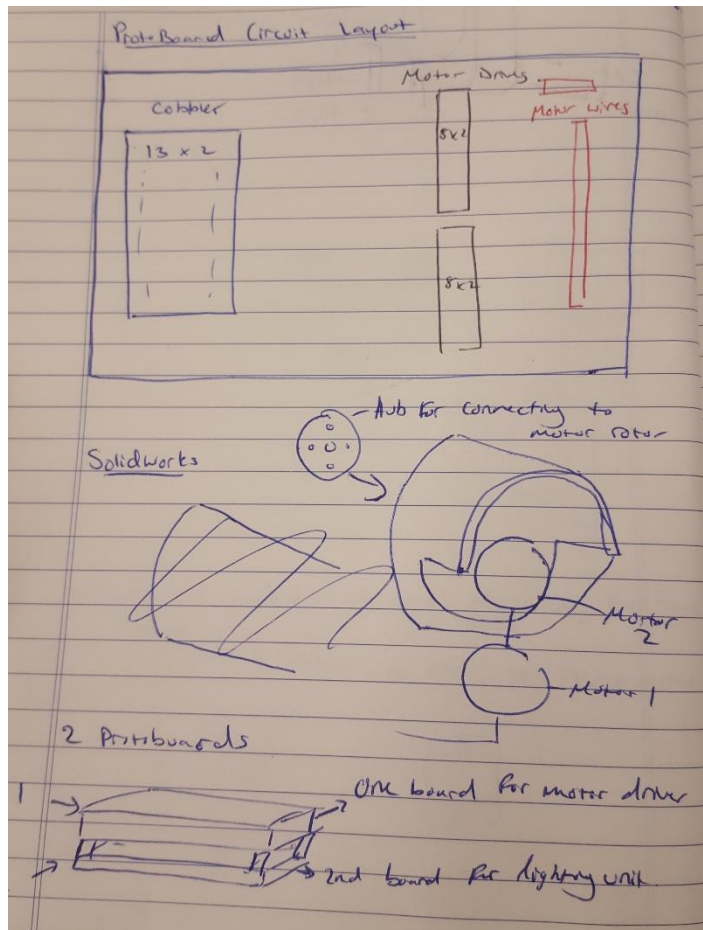 ProtoBoard Circuit Layout
Motor Drives
Cobbler
Motor wires
13 x 2
8x2
8x2
Hub for connecting to
motor rotor
Solidworks
Motor
2
Motor 1
2 Protoboards
1
One board for motor driver
2nd board for lighting unit